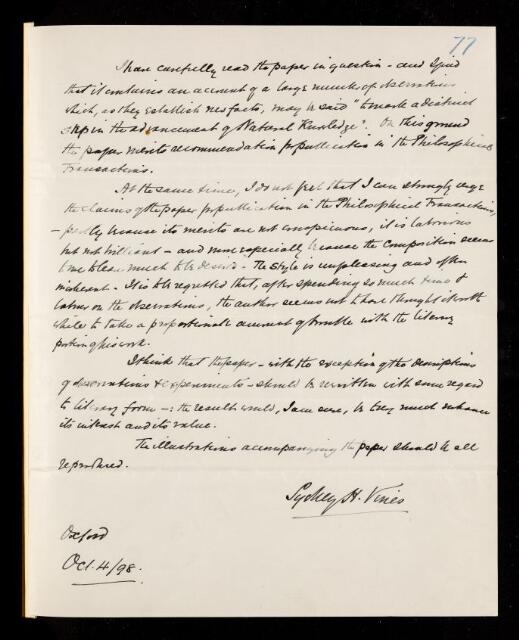 77
I have carefully read the paper in question - and I find
that it contains an account of a large number of observations
which, as they establish new facts, may be said "to mark a distinct
step in the advancement of Natural Knowledge". On this ground
the paper merits recommendation for publication in the Philosophical
Transactions.
At the same time, I do not feel that I can strongly urge
the claims of the paper for publication in the Philosophical Transactions,
- partly because its merits are not conspicuous, it is laborious
but not brilliant - and more especially because the composition seems
to me to leave much to be desired - the style is unpleasing and often
incoherent - It is to be regretted that, after spending so much time &
labour on the observations, the author seems not to have thought it worth
while to take a proportionate amount of trouble with the literary
portion of his work.
I think that the paper - with the exception of the descriptions
of observations & experiments - should be rewritten with some regard
to literary form -: the result would, I am sure, be very much enhance
its interest and its value.
The illustrations accompanying the paper should be all
reproduced.
Sydney H. Vines
Oxford
Oct. 4/98.